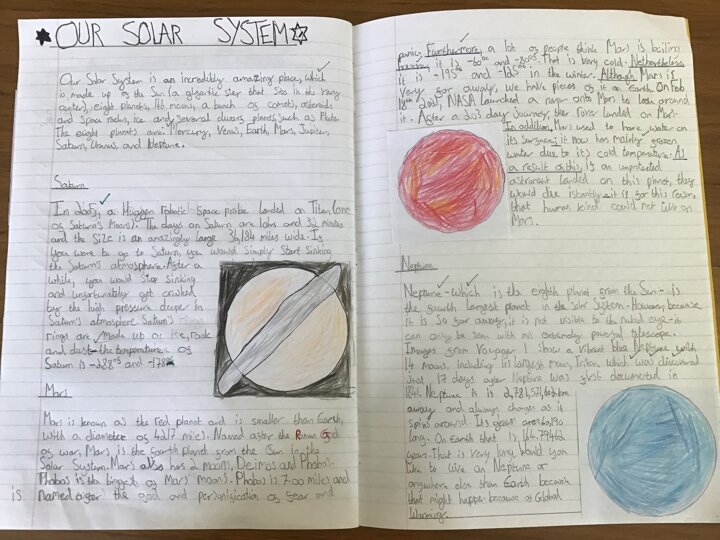 OUR SOLAR SYSTEM
Our Solar System is an incredibly amazing place, which
is made up of the Sun (a gigantic star that sits in the very
center), eight planets, 146 moons, a bunch of comets, asteroids
and space rocks, ice and several dwarf planets, such as Pluto.
The eight planets are: Mercury, Venus, Earth, Mars, Jupiter,
Saturn, Uranus, and Neptune.
Saturn
In 2005, a Robotic Space probe landed on Titan (one
of Saturn's Moons). The days on Saturn are and 32 minutes
and the size is an amazingly large 36,184 miles wide. If
you were to go to Saturn, you would simply start sinking
the Saturn's atmosphere. After a
while, you would stop sinking
and unfortunately get crushed
by the high pressure deeper in
Saturn's atmosphere. Saturn's
rings are made up of ice, rock
and dust the temperature of
Saturn is -288°F and -178°C
Mars
Mars is known as the Red planet and is smaller than Earth,
with a diameter of 4217 miles. Named after the Roman God
of war, Mars is the fourth planet from the Sun in the
Solar System. Mars also has 2 moons, Deimos and Phobos.
Phobos is the biggest of Mars' moons. Phobos is 7.00 miles and
is named after the god and personification of fear and
panic. Furthermore, a lot of people think Mars is boiling
it is -60°C and -80°F. That is very cold. Nethertheless
it is -195° and -125°C in the winter. Although Mars is
very far away, we have pieces of it on Earth. On Feb
18th NASA launched a rover onto Mars to look around
it. After a 203 day journey, the rover landed on Mars.
In addition, Mars used to have water on
its surface; it now has mainly frozen
water due to it's cold temperature. As
a result of this, If an unprotected
astronaut landed on this planet, they
would die istantly - it is for this reason,
that human kind could not live on
Mars.
Neptune
Neptune - which is the eighth planet from the Sun - is
the fourth largest planet in the Solar System. However, because
it is so far away, it is not visible to the naked eye - it
can only be seen with an extremely powerful telescope.
Images from Voyager 1 show a vibrant blue Neptune with
14 moons, including its largest moon, Triton, which was discovered
Just 17 days after Neptune was first documented in
1846. Neptune is is 2,781,571,602 km
away and always changes as it
spins around. It's years are 60,190
long. On Earth that is 164.79462
years. That is very long. Would you
like to live on Neptune or
anywhere else than Earth because
that might happen because of Global
Warming.